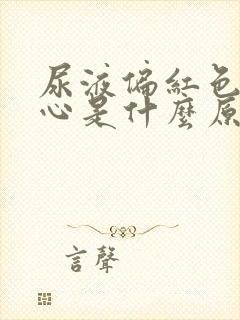 尿液偏紅色
心是什麼原
言聲